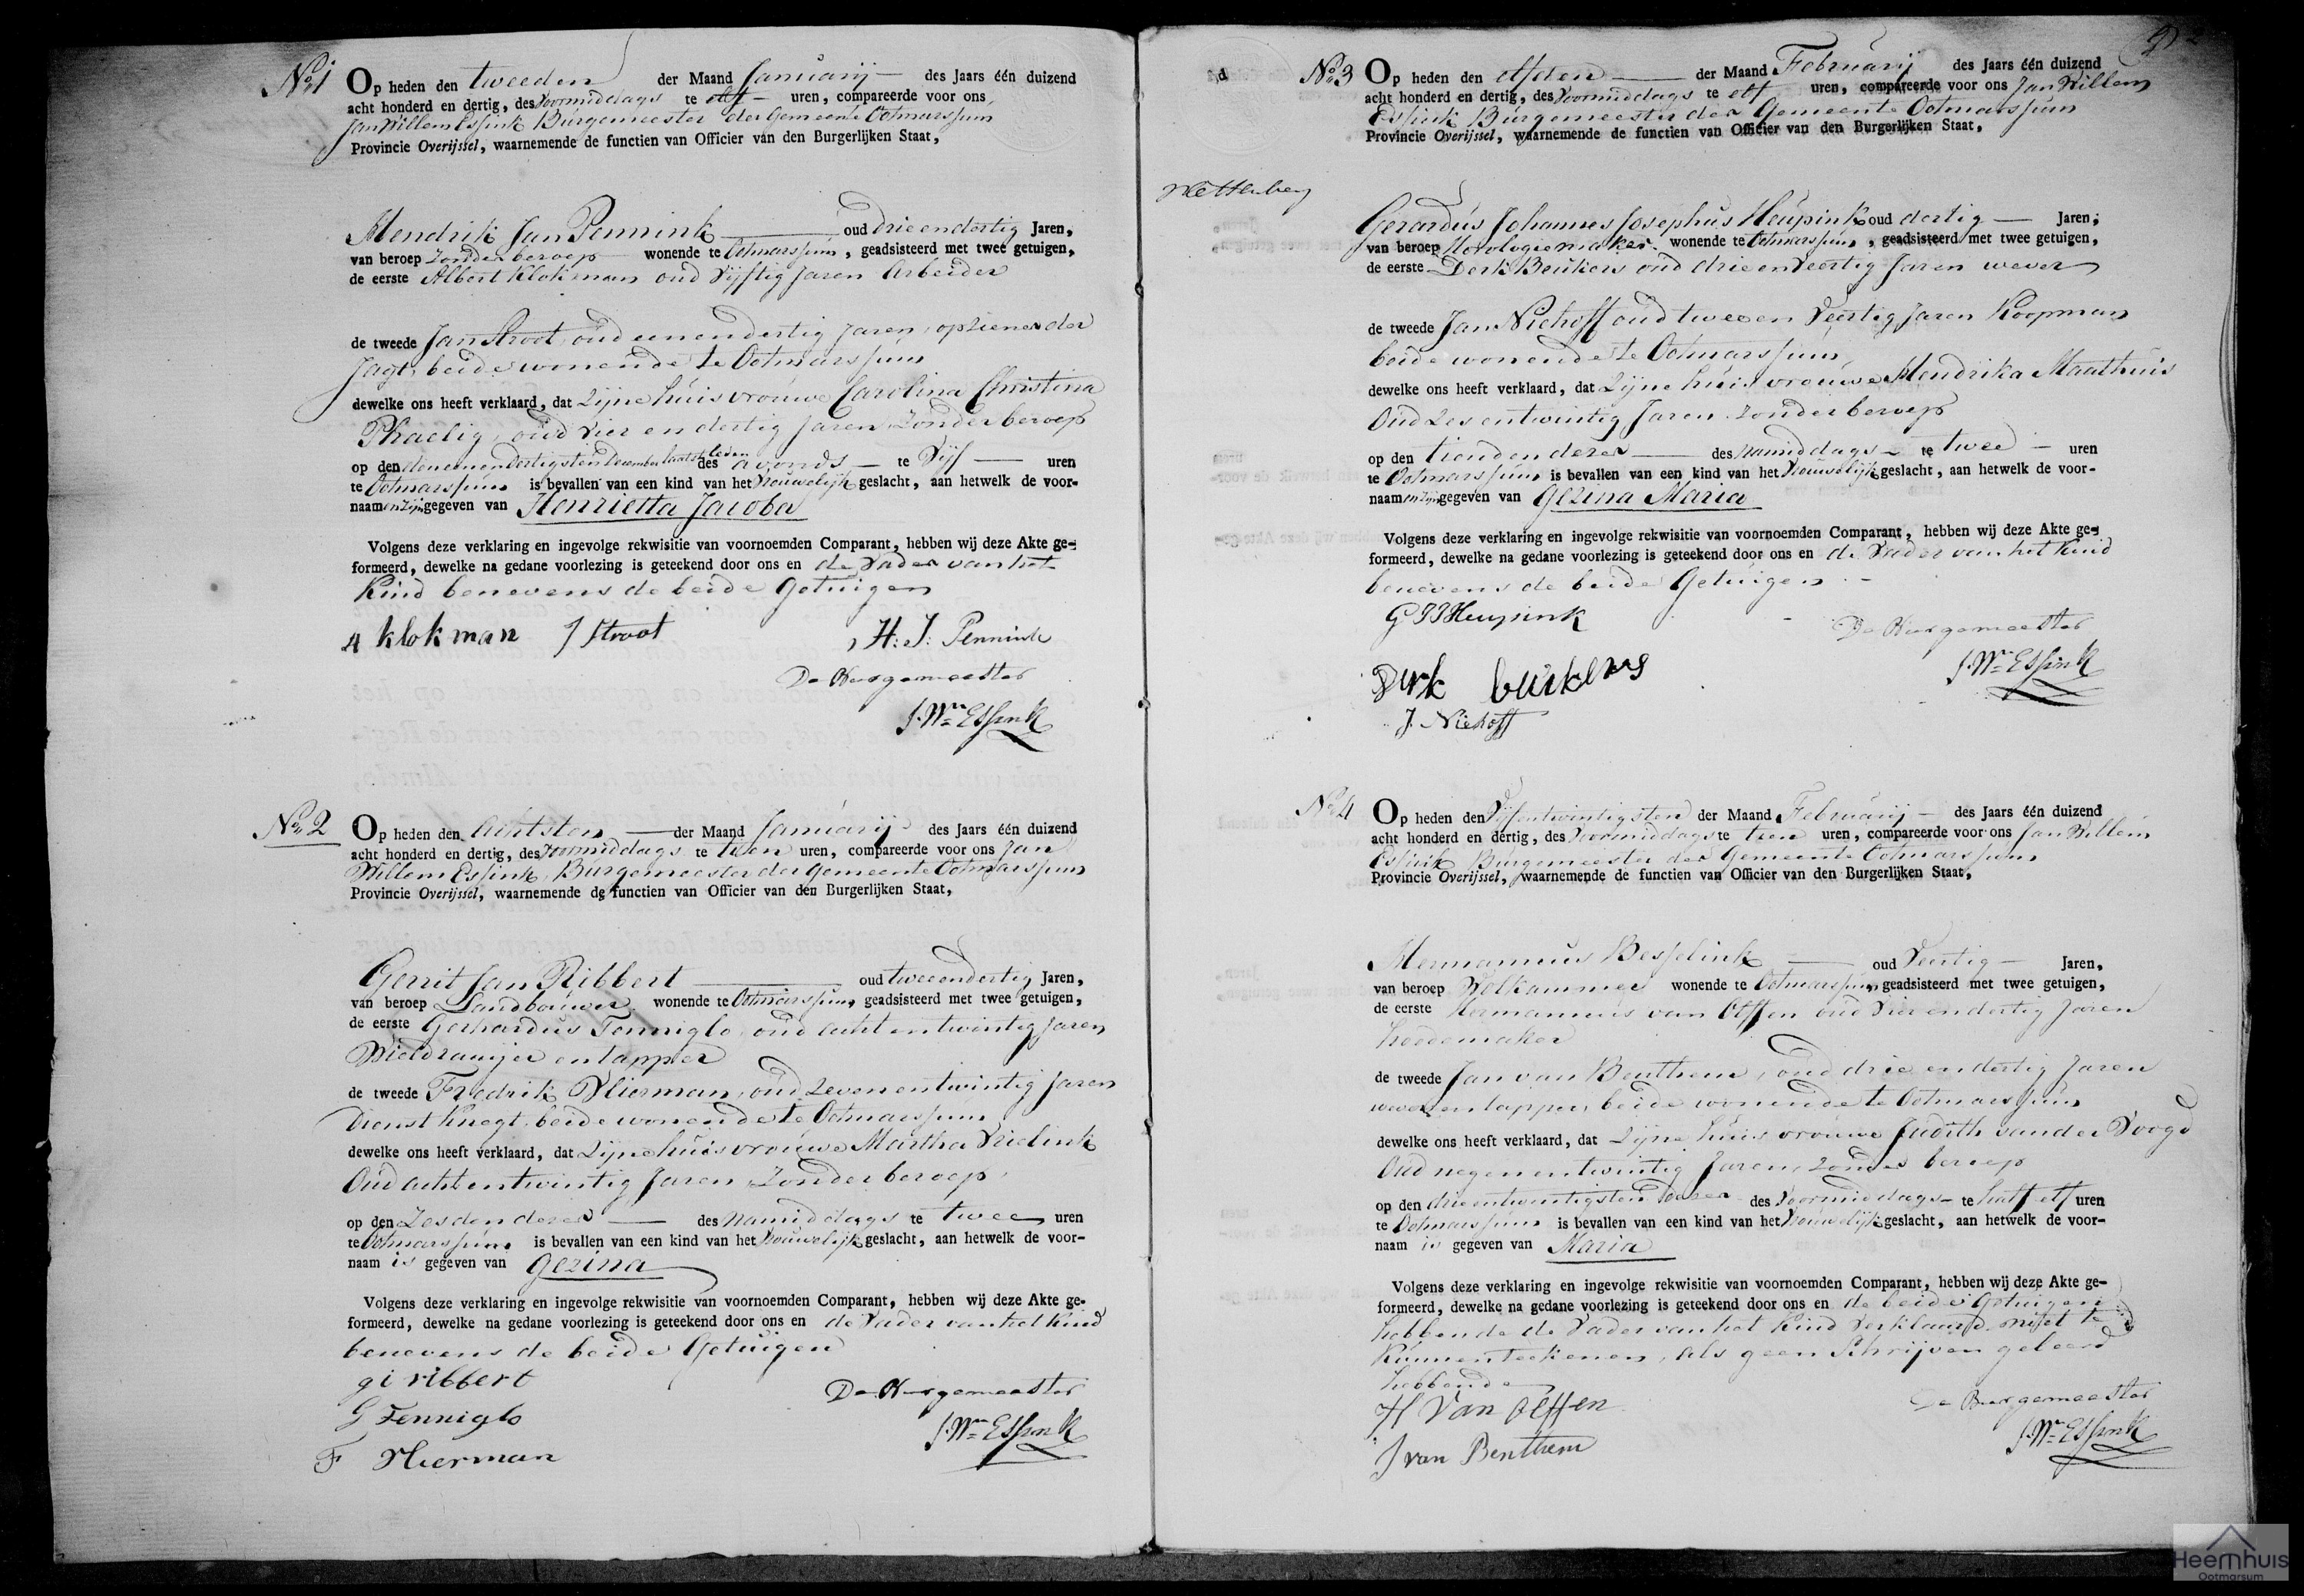 No 1
Op heden den tweeden der Maand Januarij des Jaars één duizend
acht honderd en dertig, des Voormiddags te elf uren, compareerde voor ons
Jan Willem Essink Burgemeester der Gemeente Ootmarssum
Provincie Overijssel, waarnemende de functien van Officier van den Burgerlijken Staat,
Hendrik Jan Pennink oud drie en dertig Jaren,
van beroep zonder beroep wonende te Ootmarssum, geadsisteerd met twee getuigen,
de eerste Albert Klokman oud Vijftig Jaren Arbeider
de tweede Jan Stroot, oud een en dertig Jaren, opziener der
Jagt, beide wonende te Ootmarssum
dewelke ons heeft verklaard, dat zijne huisvrouwe Carolina Christina
Phaelig, oud vier en dertig Jaren zonder beroep
op den een en dertigsten December laatstleden des avonds te Vijf uren
te Ootmarssum is bevallen van een kind van het Vrouwelijk geslacht, aan hetwelk de voor-
naamen zijn gegeven van Henrietta Jacoba
Volgens deze verklaring en ingevolge rekwisitie van voornoemden Comparant, hebben wij deze Akte ge-
formeerd, dewelke na gedane voorlezing is geteekend door ons en de Vader van het
Kind benevens de beide Getuigen
A Klokman J Stroot H: J: Pennink
De Burgemeester
J. Wm Essink
No 2
Op heden den Achtsten der Maand Januarij des Jaars één duizend
acht honderd en dertig, des Voormiddags te tien uren, compareerde voor ons Jan
Willem Essink, Burgemeester der Gemeente Ootmarssum
Provincie Overijssel, waarnemende de functien van Officier van den Burgerlijken Staat,
Gerrit Jan Ribbert oud twee en dertig Jaren,
van beroep Landbouwer wonende te Ootmarssum, geadsisteerd met twee getuigen,
de eerste Gerhardus Tenniglo, oud acht en twintig Jaren
Wieldraaijer en tapper
de tweede Fredrik Vlierman, oud zeven en twintig Jaren
Dienst Knegt, beide wonende te Ootmarssum
dewelke ons heeft verklaard, dat zijne huisvrouwe Martha Vrielink
Oud acht en twintig Jaren, zonder beroep,
op den Zesden dezer des Namiddags te twee uren
te Ootmarssum is bevallen van een kind van het Vrouwelijk geslacht, aan hetwelk de voor-
naam is gegeven van Gezina
Volgens deze verklaring en ingevolge rekwisitie van voornoemden Comparant, hebben wij deze Akte ge-
formeerd, dewelke na gedane voorlezing is geteekend door ons en de Vader van het Kind
benevens de beide Getuigen
gi ribbert
De Burgemeester
G Tenniglo
J. Wm Essink
F Vlierman
No 3
Op heden den elfden der Maand Februarij des Jaars één duizend
acht honderd en dertig, des Voormiddags te elf uren, compareerde voor ons Jan Willem
Essink Burgemeester der Gemeente Ootmarssum
Provincie Overijssel, waarnemende de functien van Officier van den Burgerlijken Staat,
Gerardus Johannes Josephus Heupink oud dertig Jaren,
van beroep Horologiemaker wonende te Ootmarssum, geadsisteerd met twee getuigen,
de eerste Derk Beukers oud drie en Veertig Jaren wever
de tweede Jan Niehoff oud twee en Veertig Jaren Koopman
beide wonende te Ootmarssum,
dewelke ons heeft verklaard, dat zijne huisvrouwe Hendrika Maathuis
Oud zes en twintig Jaren zonder beroep
op den tienden dezer des Namiddags te twee uren
te Ootmarssum is bevallen van een kind van het Vrouwelijk geslacht, aan hetwelk de voor-
naamen zijn gegeven van Gezina Maria
Volgens deze verklaring en ingevolge rekwisitie van voornoemden Comparant, hebben wij deze Akte ge-
formeerd, dewelke na gedane voorlezing is geteekend door ons en de Vader van het Kind
benevens de beide Getuigen
G J J Heupink
De Burgemeester
J. Wm Essink
Derk beukers
J. Niehoff
No 4
Op heden den Vijfentwintigsten der Maand Februarij des Jaars één duizend
acht honderd en dertig, des Voormiddags te tien uren, compareerde voor ons Jan Willem
Essink Burgemeester der Gemeente Ootmarssum
Provincie Overijssel, waarnemende de functien van Officier van den Burgerlijken Staat,
Hermannus Besselink oud Veertig Jaren,
van beroep Wolkammer wonende te Ootmarssum, geadsisteerd met twee getuigen,
de eerste Hermannus van Olffen oud Vier en dertig Jaren
hoedemaker
de tweede Jan van Benthem, oud drie en dertig Jaren
wever en tapper, beide wonende te Ootmarssum
dewelke ons heeft verklaard, dat zijne huisvrouwe Judith van der Voogd
Oud negen en twintig Jaren, zonder beroep
op den drie en twintigsten dezer des Voormiddags te half elf uren
te Ootmarssum is bevallen van een kind van het Vrouwelijk geslacht, aan hetwelk de voor-
naam is gegeven van Maria
Volgens deze verklaring en ingevolge rekwisitie van voornoemden Comparant, hebben wij deze Akte ge-
formeerd, dewelke na gedane voorlezing is geteekend door ons en de beide Getuigen
hebbende de Vader van het Kind verklaard niet te
Kunnen teekenen, als geen Schrijven geleerd
hebbende
H Van Olffen
De Burgemeester
J. Wm Essink
J van Benthem
Heemhuis
Ootmarsum